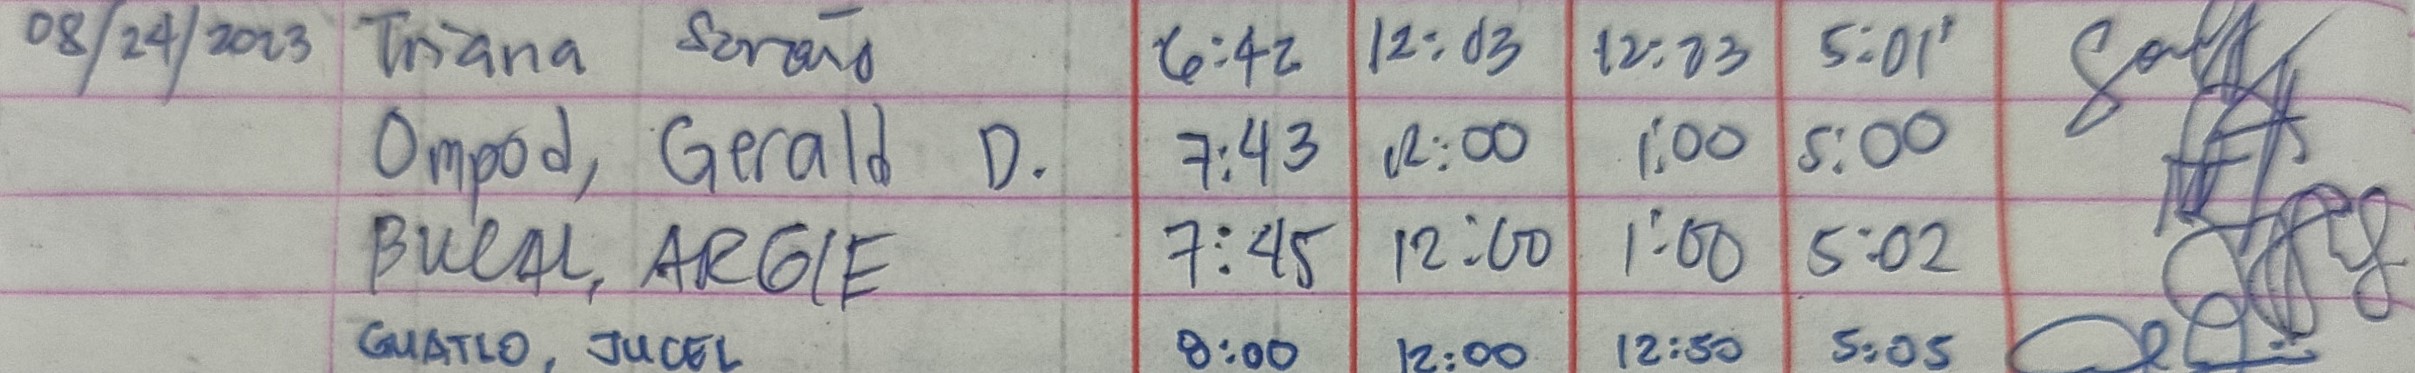 08/24/2023 Triana 6:42 12:03 12:03 5:01
Ompod, Gerald D. 7:43 12:00 1:00 5:00
BUCAL, ARGIE 7:45 12:00 1:00 5:02
GUATLO, JUCEL 8:00 12:00 12:50 5:05